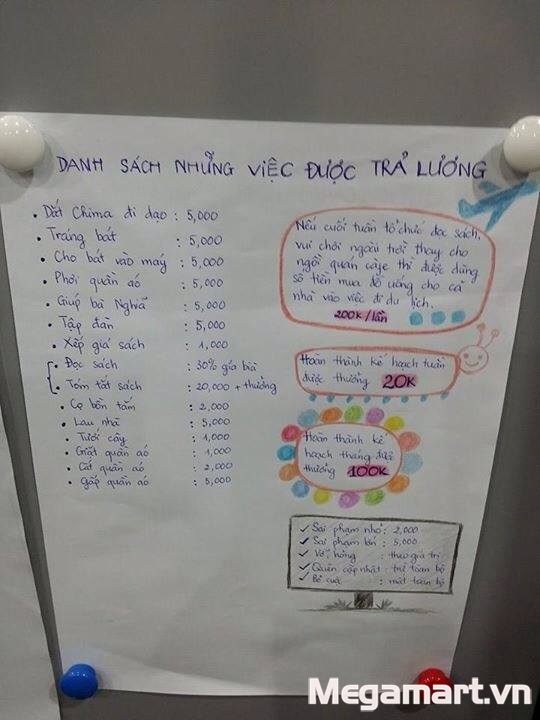 DANH SÁCH NHỮNG VIỆC ĐƯỢC TRẢ LƯƠNG
• Dắt Chima đi dạo : 5,000
• Tráng bát : 5,000
• Cho bát vào máy : 5,000
• Phơi quần áo : 5,000
• Giúp bà Nghĩa : 5,000
• Tập đàn : 5,000
• Xếp giá sách : 1,000
• Đọc sách : 30% gía bìa
• Tóm tắt sách : 20,000 + thưởng
• Cọ bồn tắm : 2,000
• Lau nhà : 5,000
• Tưới cây : 1,000
• Giặt quần áo : 1,000
• Cất quần áo : 2,000
• Gấp quần áo : 5,000
Nếu cuối tuần tổ chức đọc sách,
vui chơi ngoài trời thay cho
ngồi quán cafe thì được dùng
số tiền mua đồ uống cho cả
nhà vào việc đi du lịch.
200K/lần
Hoàn thành kế hoạch tuần
được thưởng 20K
Hoàn thành kế
hoạch tháng được
thưởng 100K
✓ Sai phạm nhỏ : 2,000
✓ Sai phạm lớn : 5,000
✓ Vỡ, hỏng : theo giá trị
✓ Quên cập nhật : trừ toàn bộ
✓ Bỏ cuộc : mất toàn bộ
Megamart.vn